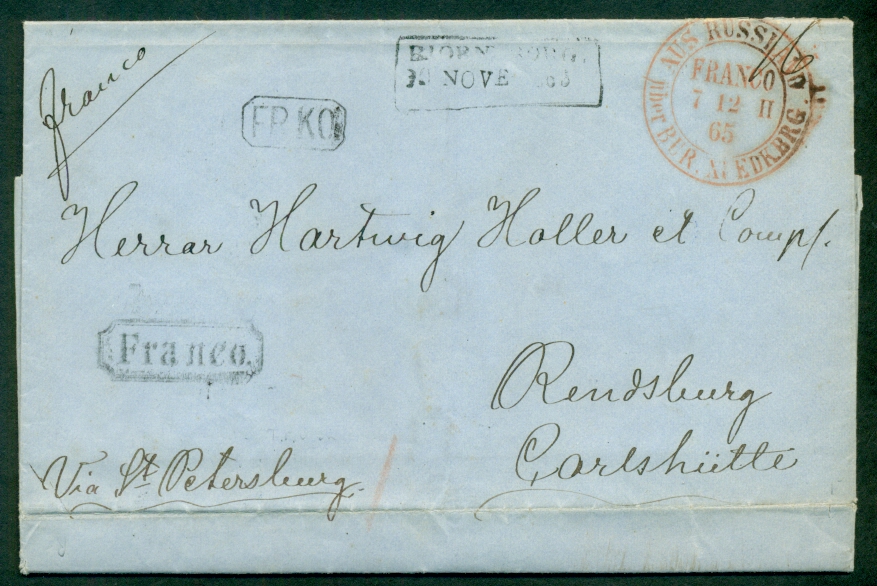 franco
FRKO
BJÖRNEBORG.
30 NOVE 1865
AUS RUSSLAND
FRANCO
7 12 II
65
BUR. XI EDKBRG
Herrar Hartwig Holler et Comp/.
Franco.
Rendsburg
Carlshütte
Via St Petersburg.